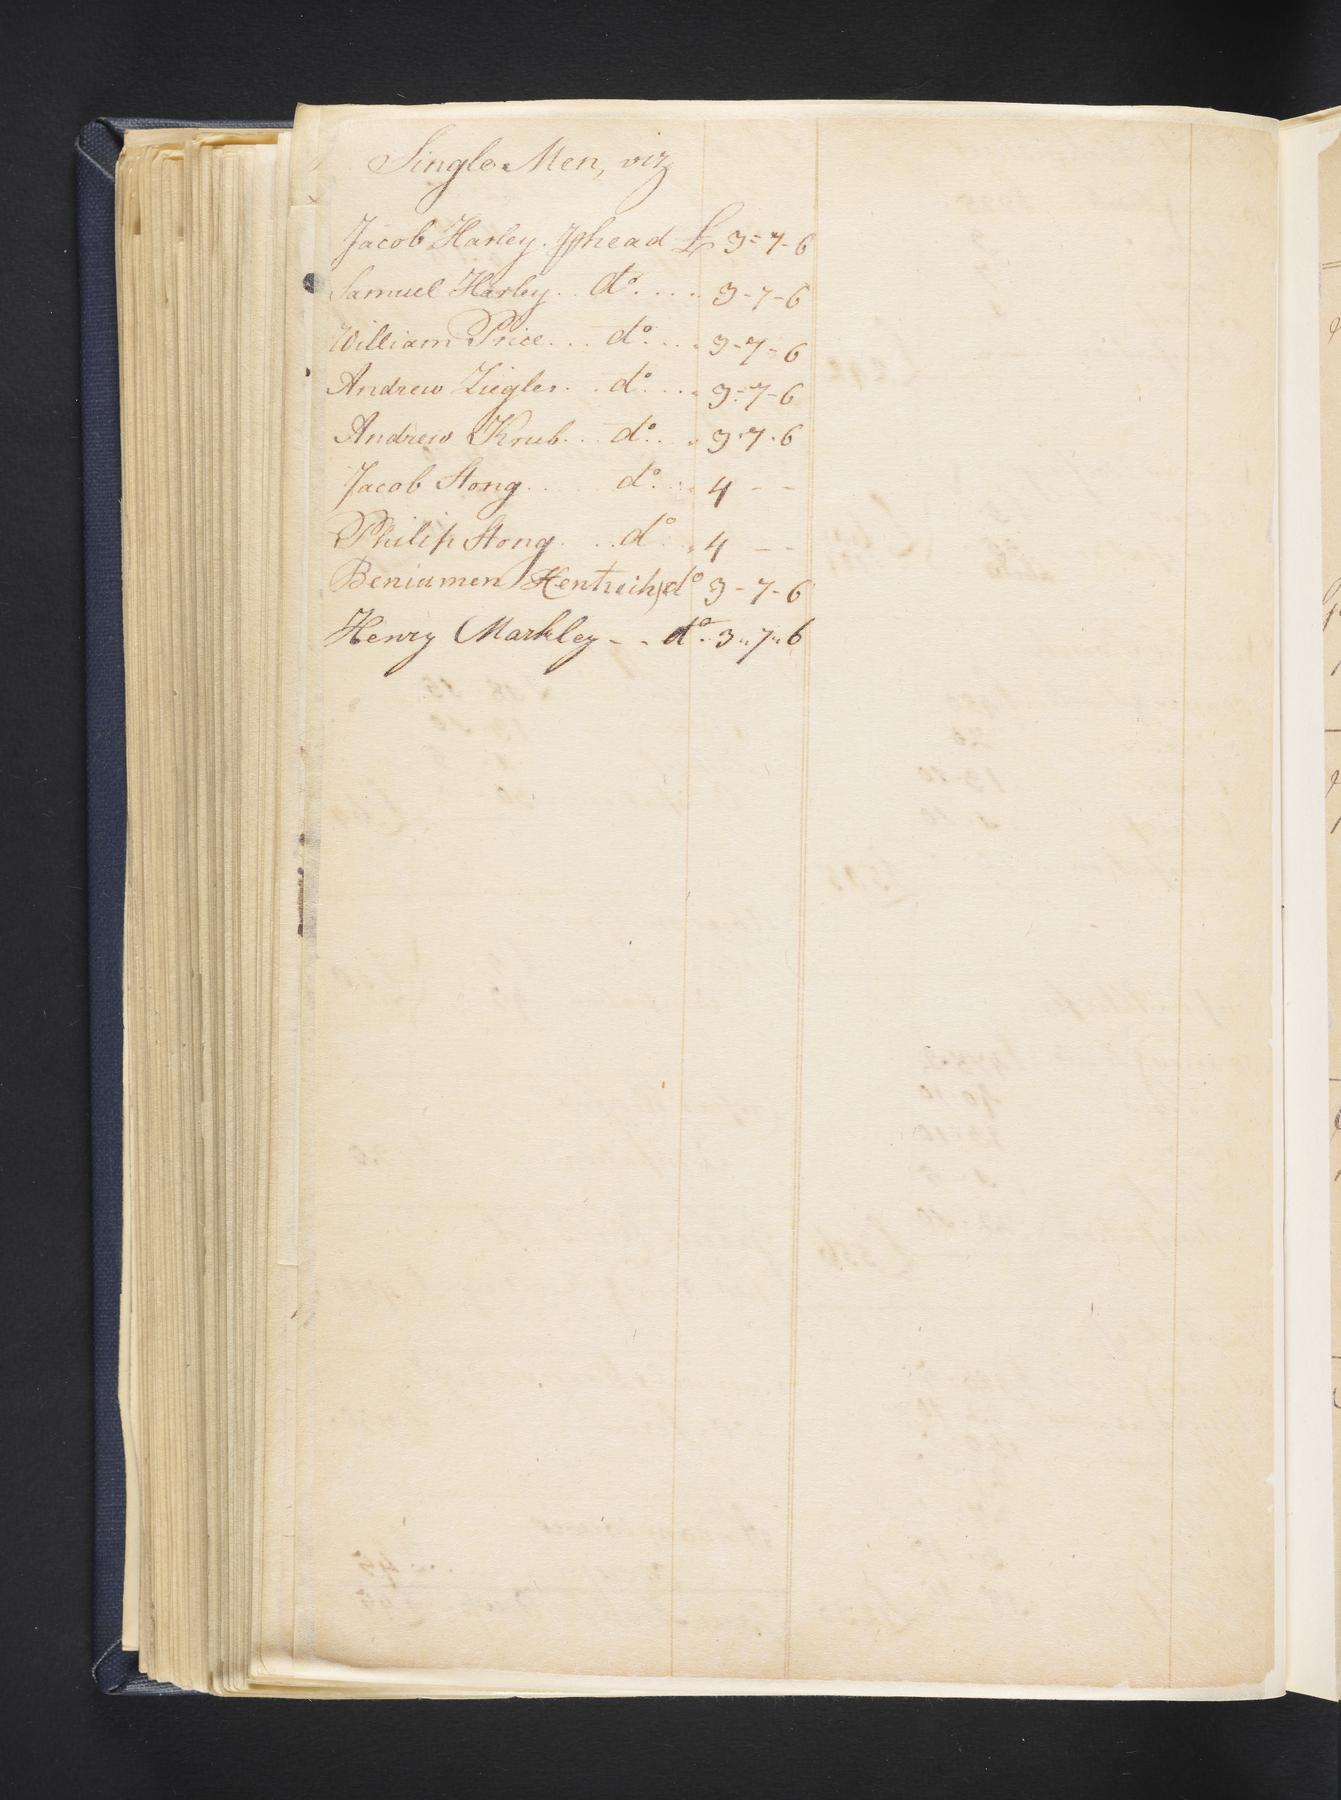 Single Men, viz
Jacob Harley. ⅌ head £ 3=7-6
Samuel Harley.. do..... 3-7-6
William Price... do.... 3-7-6
Andrew Ziegler... do.... 3=7-6
Andrew Krub... do... 3.7.6
Jacob Stong..... do... 4 - -
Philip Stong... do.. 4 - -
Beniamen Hentrich do 3-7-6
Henry Markley - - do. 3"7"6